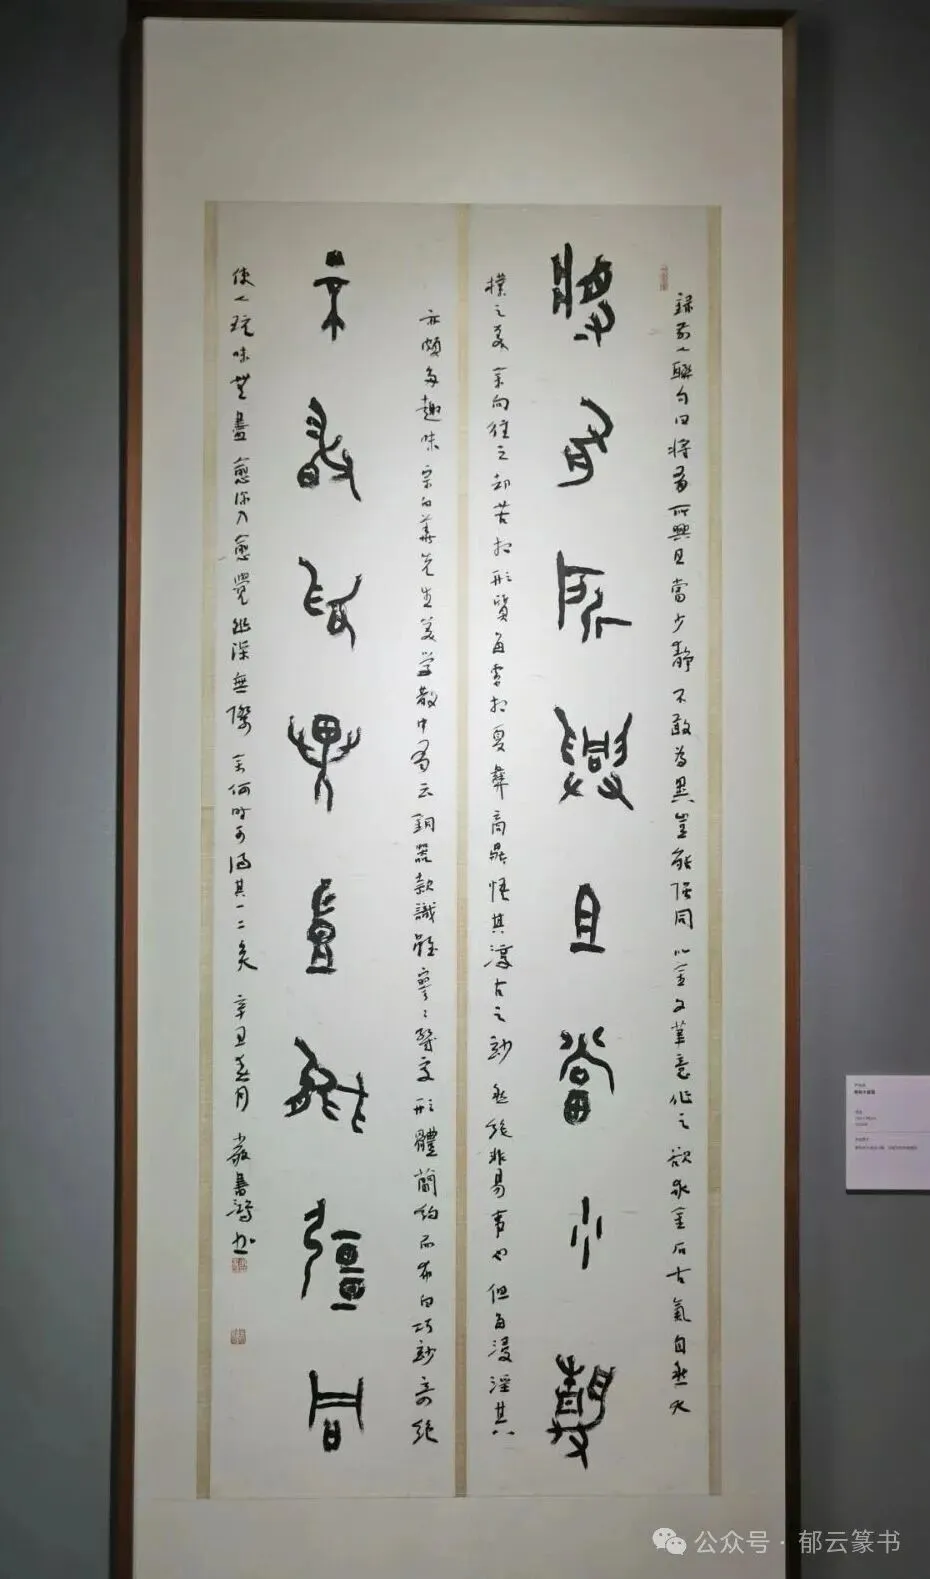 錄前人聯句曰將有所興且當少靜不敢為異豈能強同以金文筆意作之欲求金石古氣自然大
將有所興且當少靜
樸之美余向往之却苦於形質每觀於夏彝商鼎悟其淳古之妙然絕非易事也但每浸淫其
亦頗多趣味宗白華先生美學散中有云銅器款識雖寥寥幾字形體簡約而布白巧妙奇絕
不敢為異豈能彊同
使人玩味無盡愈深入愈覺幽深無際余何時可得其一二矣辛丑春月
公众号·郁云篆书